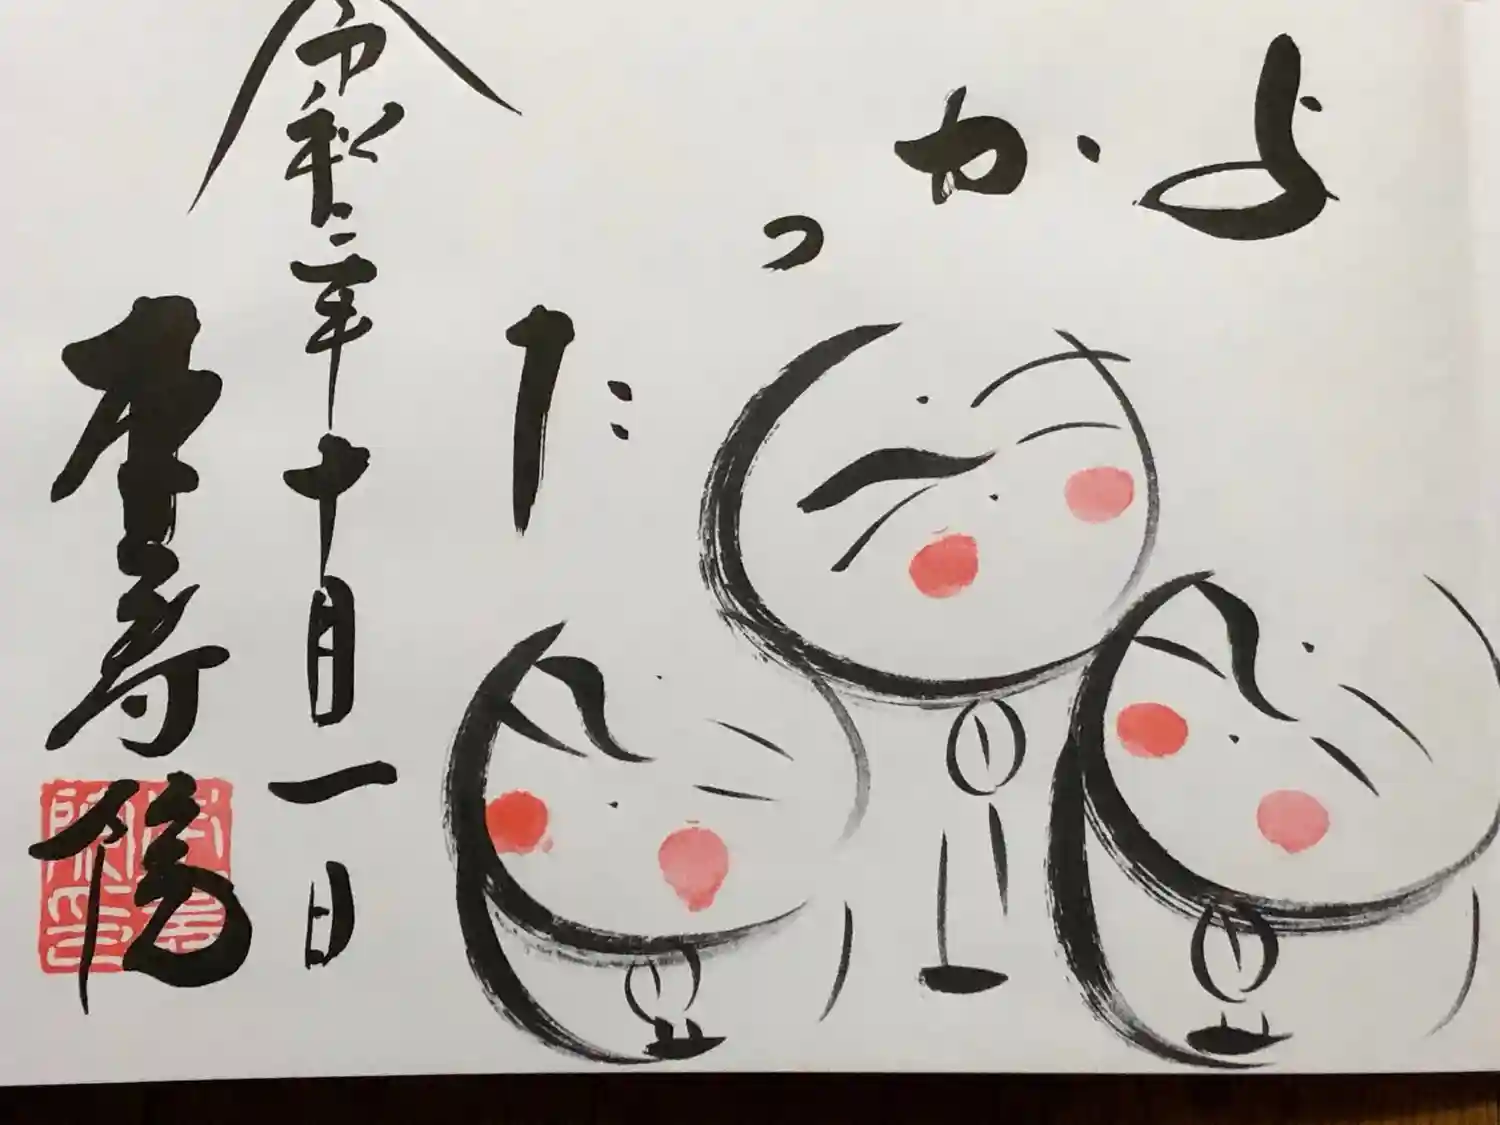 よかった
令和二年十月一日
本寿院